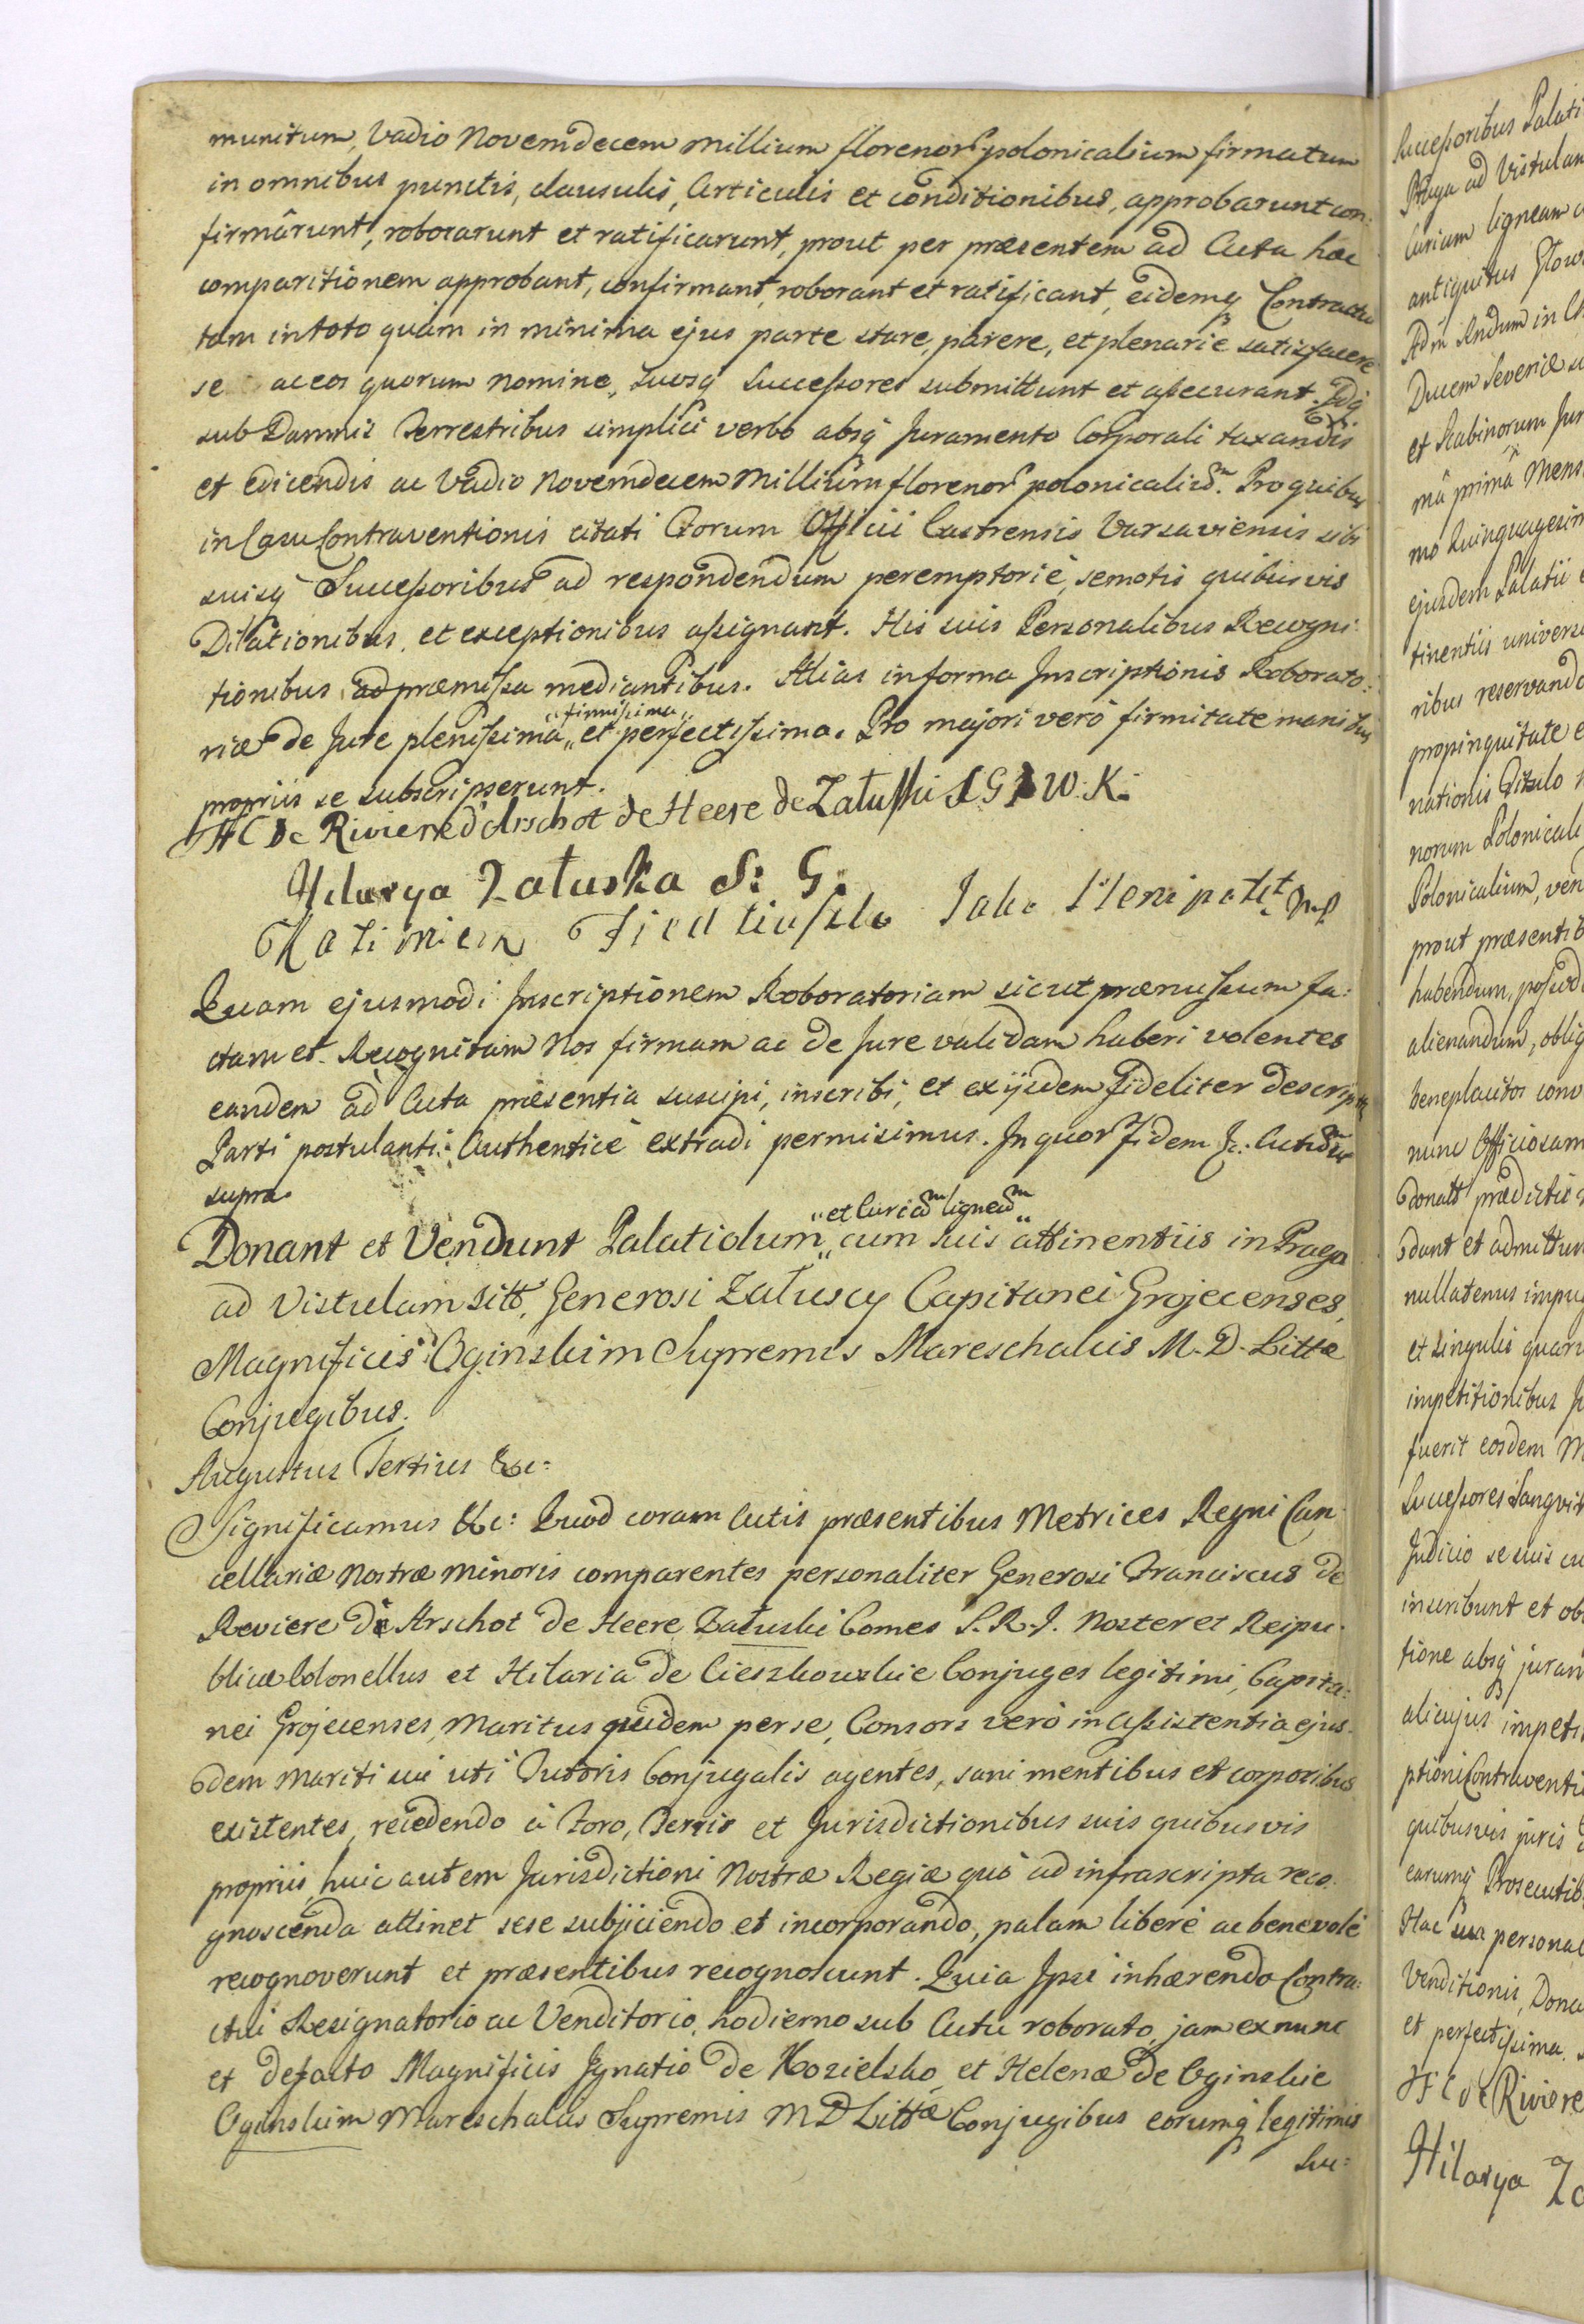 munitum, Vadio Novemdecem millium florenor. polonicalium firmatum
in omnibus punctis, clausulis, Articulis et conditionibus, approbarunt con:
firmârunt, roborarunt et ratificarunt, prout per præsentem ad Acta hæc
comparitionem approbant, confirmant, roborant et ratificant, eidemq Contractui
tam in toto quàm in minima ejus parte stare, parere, et plenariè satisfacere
se ac eos quorum nomine, suosq Successores submittunt et assecurant. Idq
sub Damnis Terrestribus simplici verbo absq Juramento Corporali taxandis
et edicendis ac Vadio Novemdecem Millium florenor polonicaliũm. Pro quibus
in Casu Contraventionis citati Forum Officii Castrensis Varsaviensis sibi
suisq Successoribus ad respondendum peremptoriè, semotis quibusvis
Dilationibus, et exceptionibus assignant. His suis Personalibus Recogni:
tionibus ad præmissa mediantibus. Alias in forma Inscriptionis Roborato:
riæ de Jure plenissima „firmissima„ et perfectissima. Pro majori verò firmitate manibus
propriis se subscripserunt.
FC De Riviere d'Arschot de Heere de Załuski S G P W. K.
Hilarya Załuska S: G.
Jako Plenipotet m.p
Quam ejusmodi Inscriptionem Roboratoriam sicut præmissum fa:
ctam et Recognitam Nos firmam ac de Jure validam haberi volentes
eandem ad Acta præsentia suscipi, inscribi, et exijsdem fideliter descriptam
Parti postulanti Authenticè extradi permisimus. In quor Fidem &c. Actum ut
supra.
Donant et Vendunt Palatiolum „et Curiam ligneam„ cum suis attinentiis in Praga
ad Vistulam sitt, Generosi Załuscy Capitanei Grojecenses,
Magnificis Oginskim Supremis Mareschalcis M. D. Littæ
Conjugibus.
Augustus Tertius &c:
Significamus &c: Quod coram Actis præsentibus Metrices Regni Can:
cellariæ Nostræ minoris comparentes personaliter Generosi Franciscus de
Reviere de Arschot de Heere Załuski Comes S. R. I. Noster et Reipu:
blicæ Colonellus et Hilaria de Cieszkowskie Conjuges legitimi, Capita:
nei Grojecenses, Maritus quidem per se, Consors verò in Assistentia ejus:
dem Mariti sui uti Tutoris Conjugalis agentes, sani mentibus et corporibus
existentes, recedendo à Foro, Terris et Jurisdictionibus suis quibusvis
propriis, huic autem Jurisdictioni Nostræ Regiæ quò ad infrascripta reco:
gnoscenda attinet sese subjiciendo et incorporando, palam liberè ac benevolè
recognoverunt et præsentibus recognoscunt. Quia Ipsi inhærendo Contra:
ctui Resignatorio ac Venditorio, hodierno sub Actu roborato, jam ex nunc
et defacto Magnificis Ignatio de Kozielsko et Helenæ de Oginskie
Oginskim Mareschalcis Supremis M D Littæ Conjugibus eorumq legitimis
Suc:
Successoribus Palati
Praga ad Vistulam
Curiam ligneam
antiquitus
Ducem Severiæ
et Scabinorum Jur
mâ primâ Mens
mo Quinquagesim
ejusdem Palatii
tinentiis univers
ribus reservando
propinquitate e
nationis Titulo
norum Polonicali
Polonicalium, ven
prout præsentib
habendum, possid
alienandum, oblig
beneplacitos conv
nunc Officiosam
donatt prædictis
dant et admittun
nullatenus impug
et singulis quaru
impetitionibus
fuerit eosdem M
Successores Sangvit
Judicio se suis
inscribunt et ob
tione absq juram
alicujus impeti
ptioni Contraventi
quibusvis juris
earumq Prosecutib
Hac sua personal
Venditionis, Dona
et perfectissima.
FC de Riviere
Hilarya Za